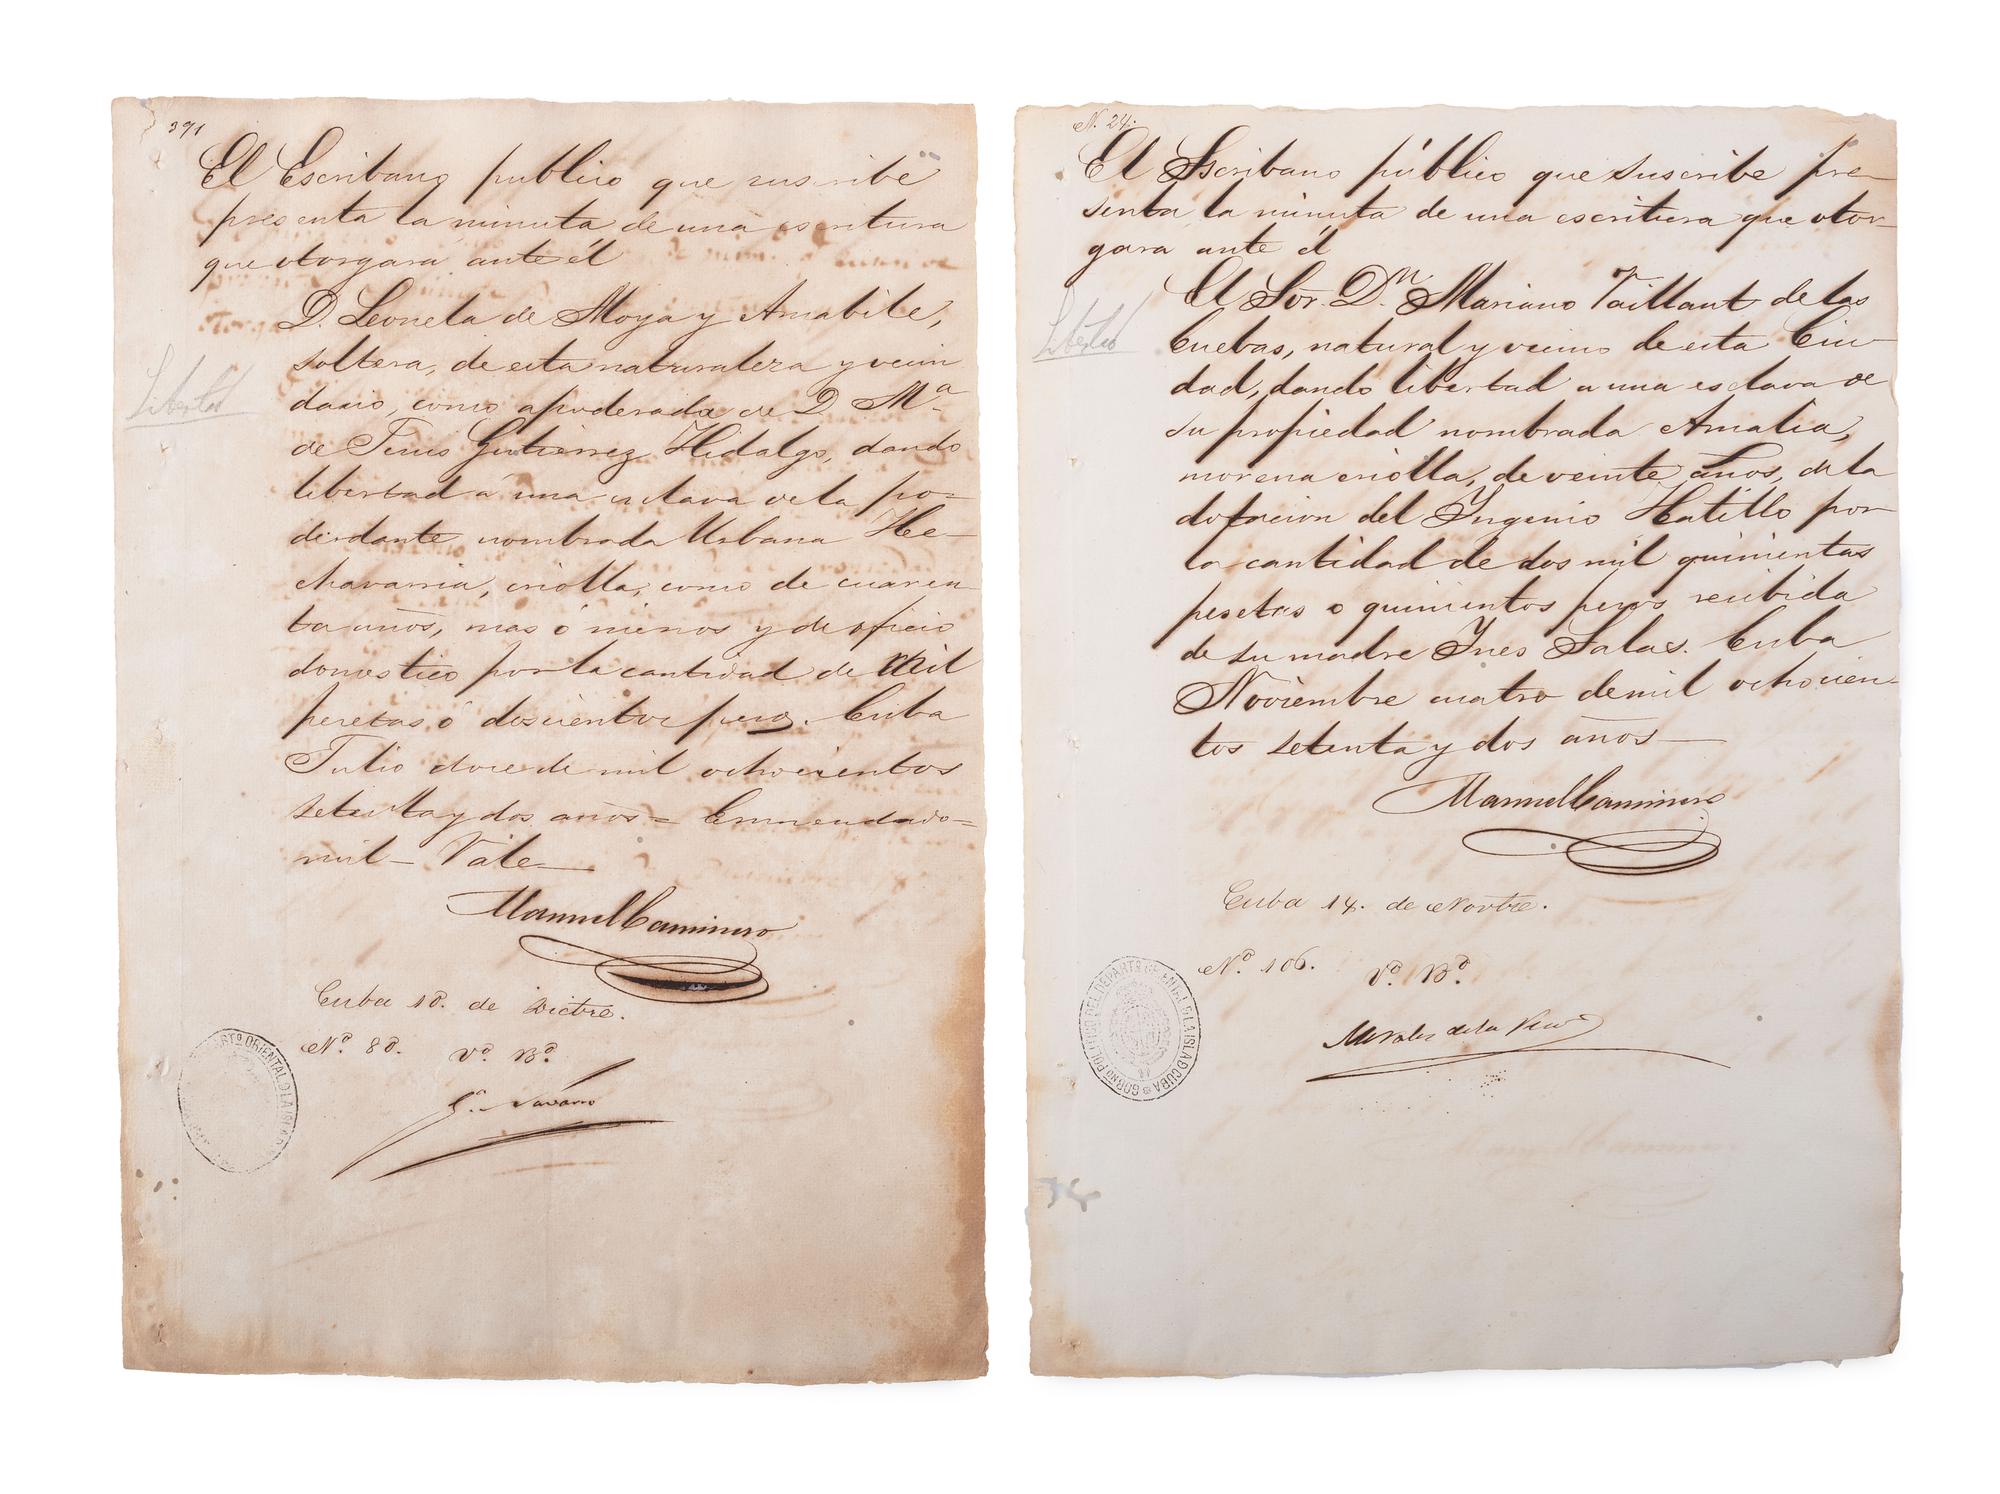 391
El Escribano publico que suscribe
presenta la minuta de una escritura
que otorgará ante él
Libertad
D. Leonela de Moya y Amabile,
soltera, de esta naturaleza y vecin
dario, como apoderada de D. Mª
de Jesus Gutierrez Hidalgo, dando
libertad á una esclava de la po-
derdante nombrada Urbana He-
chavarria, criolla, como de cuaren
ta años, mas ó menos y de oficio
domestico por la cantidad de mil
pesetas ó doscientos pesos. Cuba
Julio doce de mil ochocientos
setenta y dos años = Enmendado =
mil - Vale
Manuel Caminero
Cuba 18. de Dictre.
Nº. 88. Vº. Bº.
Navarro
ARTº ORIENTAL D LA ISLA
N. 24.
El Escribano público que suscribe pre-
senta la minuta de una escritura que otor-
gara ante él
Libertad
El Sor. Dn Mariano Vaillant de las
Cuebas, natural y vecino de esta Ciu-
dad, dando libertad a una esclava de
su propiedad nombrada Amalia,
morena criolla, de veinte años, de la
dotacion del Ingenio Hatillo por
la cantidad de dos mil quinientas
pesetas o quinientos pesos recibida
de su madre Ynes Salas. Cuba
Noviembre cuatro de mil ochocien-
tos setenta y dos años
Manuel Caminero
Cuba 14. de Novbre.
Nº. 106. Vº. Bº.
Morales de los Rios
GOBNO POLITICO DEL DEPARTº ORIENTAL D LA ISLA D CUBA